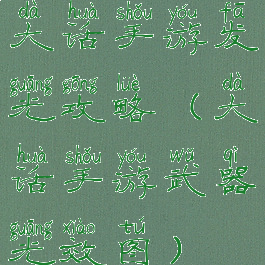 dà huà shǒu yóu fā
大话手游发
guāng gōng lüè dà
光攻略（大
huà shǒu yóu wǔ qì
话手游武器
guāng xiào tú
光效图）